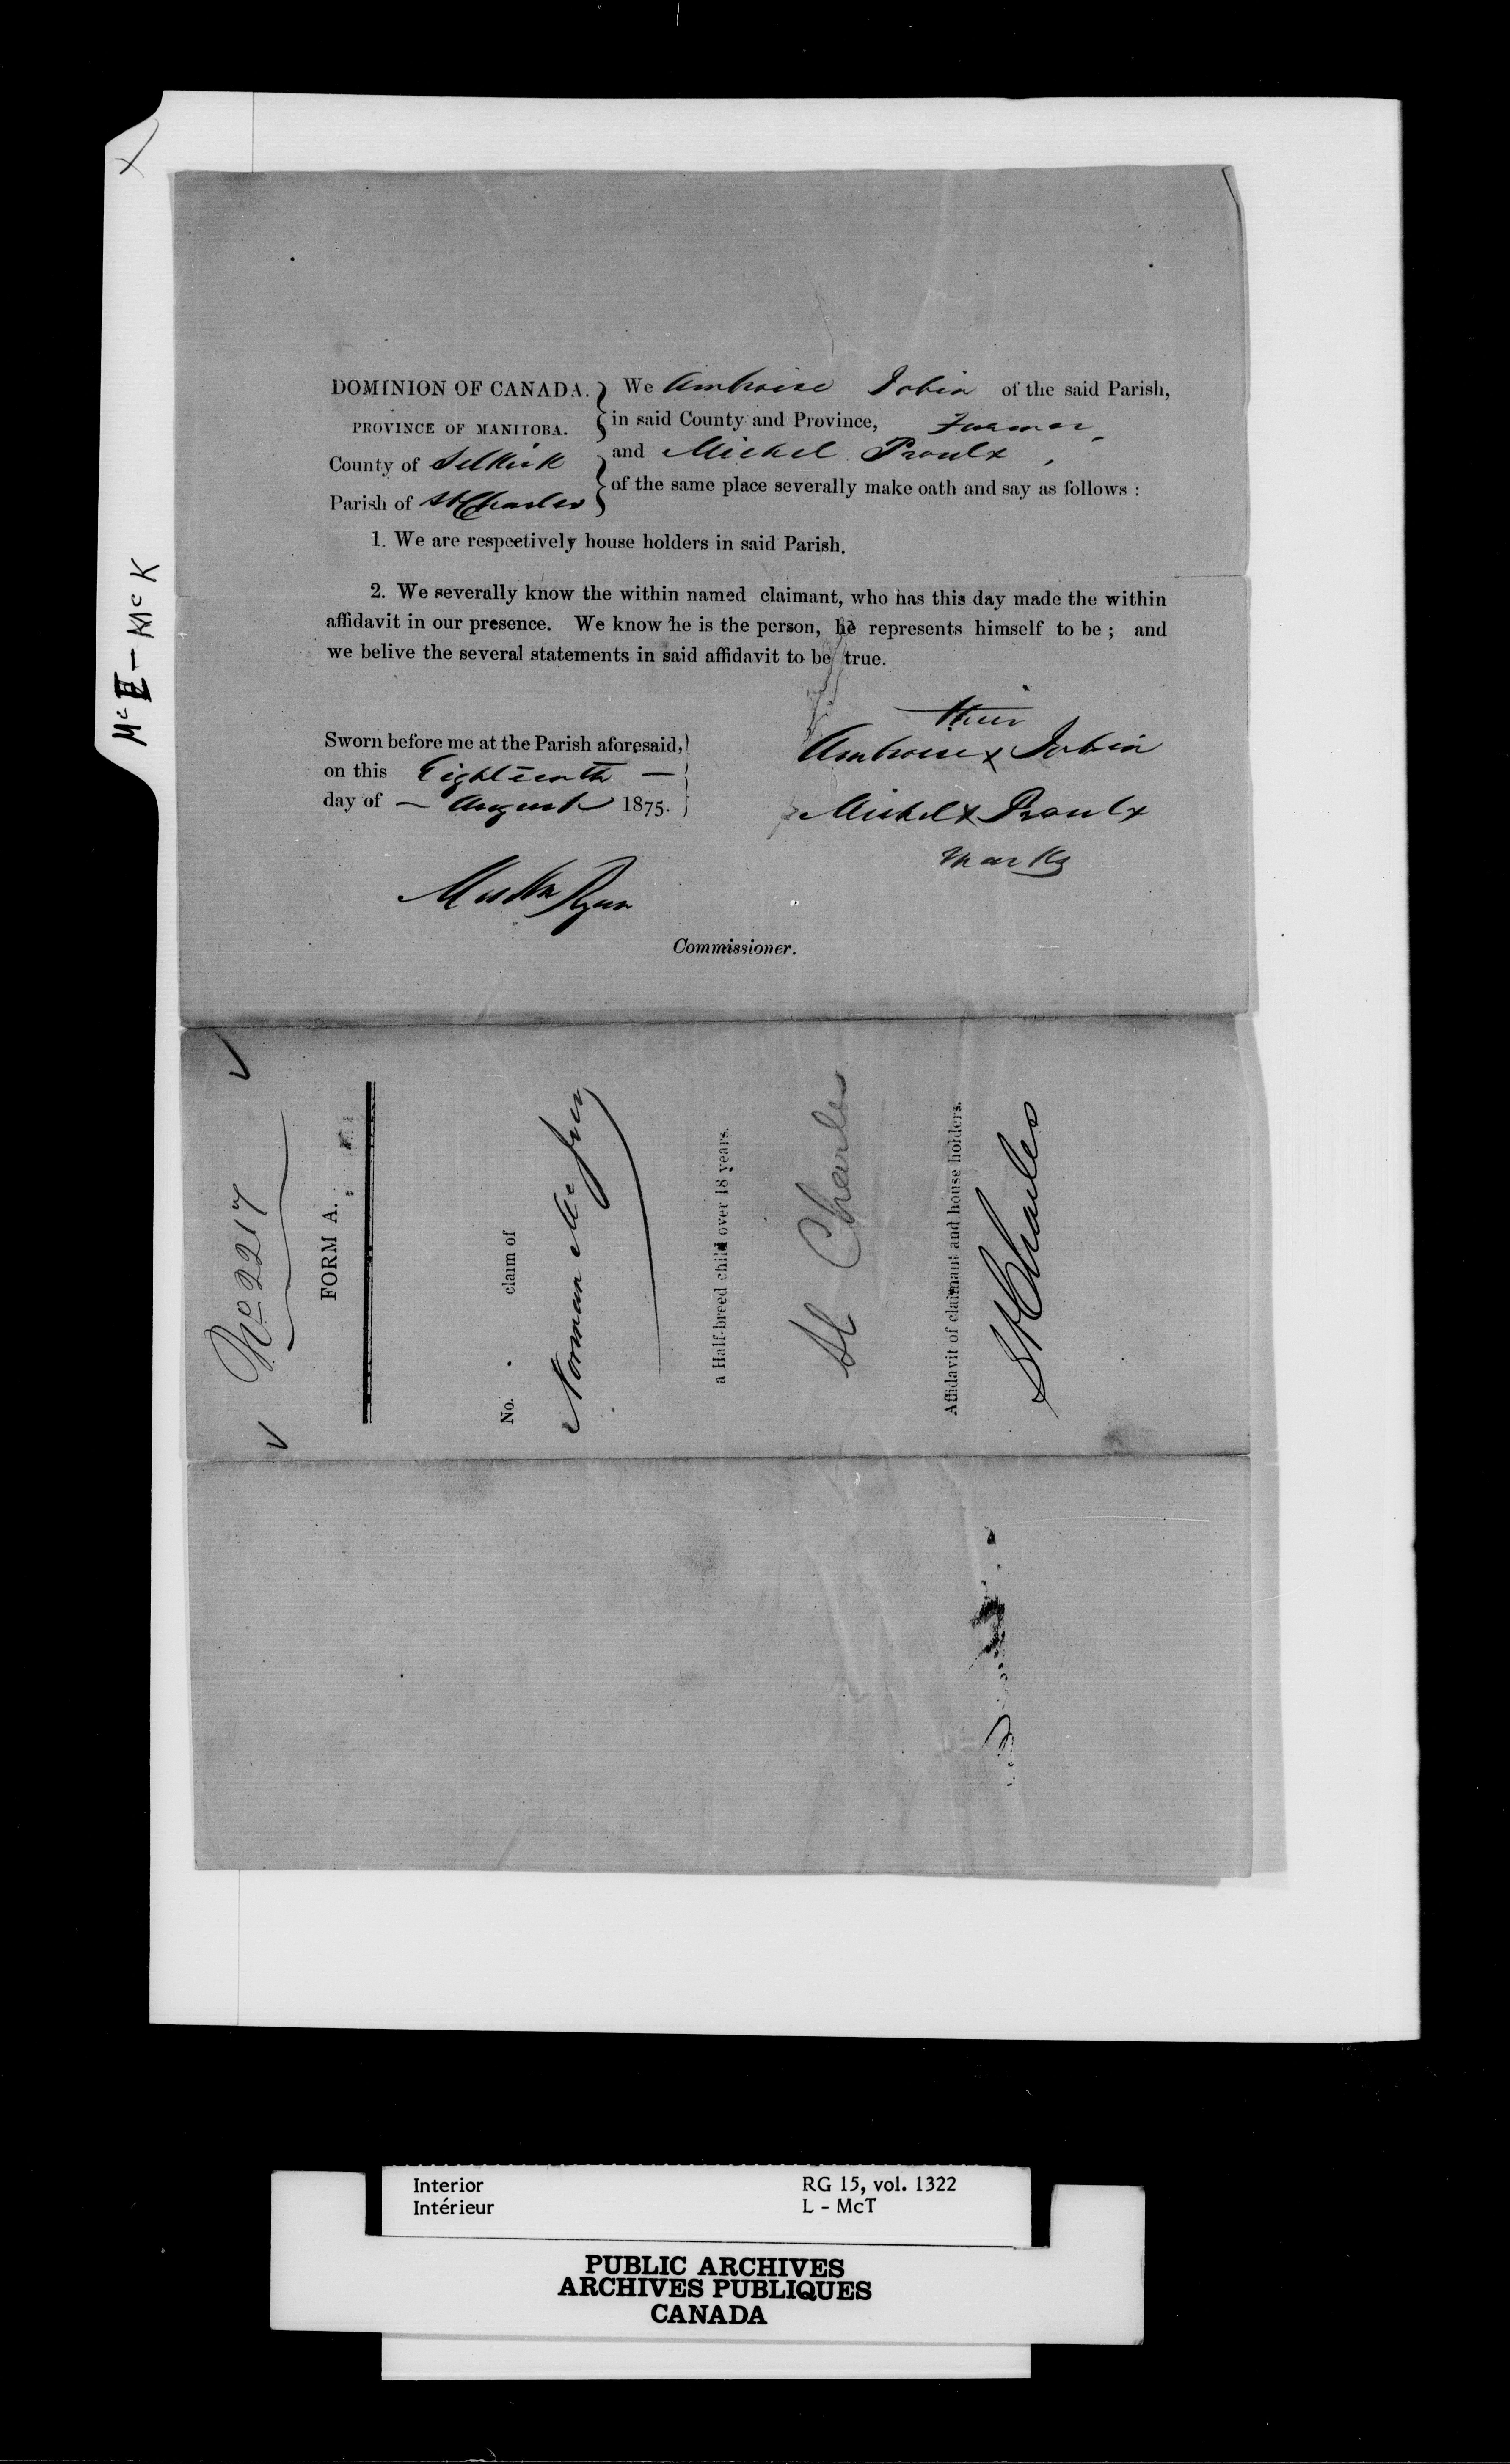 X
Mc E - McK
DOMINION OF CANADA.
PROVINCE OF MANITOBA.
County of Selkirk
Parish of St Charles
We Ambroise Jobin of the said Parish,
in said County and Province, Farmer,
and Michel Proulx,
of the same place severally make oath and say as follows :
1. We are respectively house holders in said Parish.
2. We severally know the within named claimant, who has this day made the within
affidavit in our presence. We know he is the person, he represents himself to be ; and
we belive the several statements in said affidavit to be true.
Sworn before me at the Parish aforesaid,
on this Eighteenth —
day of — August 1875.
their
Ambroise x Jobin
Michel x Proulx
marks
Ryan
Commissioner.
No 2217
FORM A.
No. claim of
Norman Mc
a Half-breed child over 18 years.
St Charles
Affidavit of claimant and house holders.
St Charles
Interior RG 15, vol. 1322
Intérieur L - McT
PUBLIC ARCHIVES
ARCHIVES PUBLIQUES
CANADA